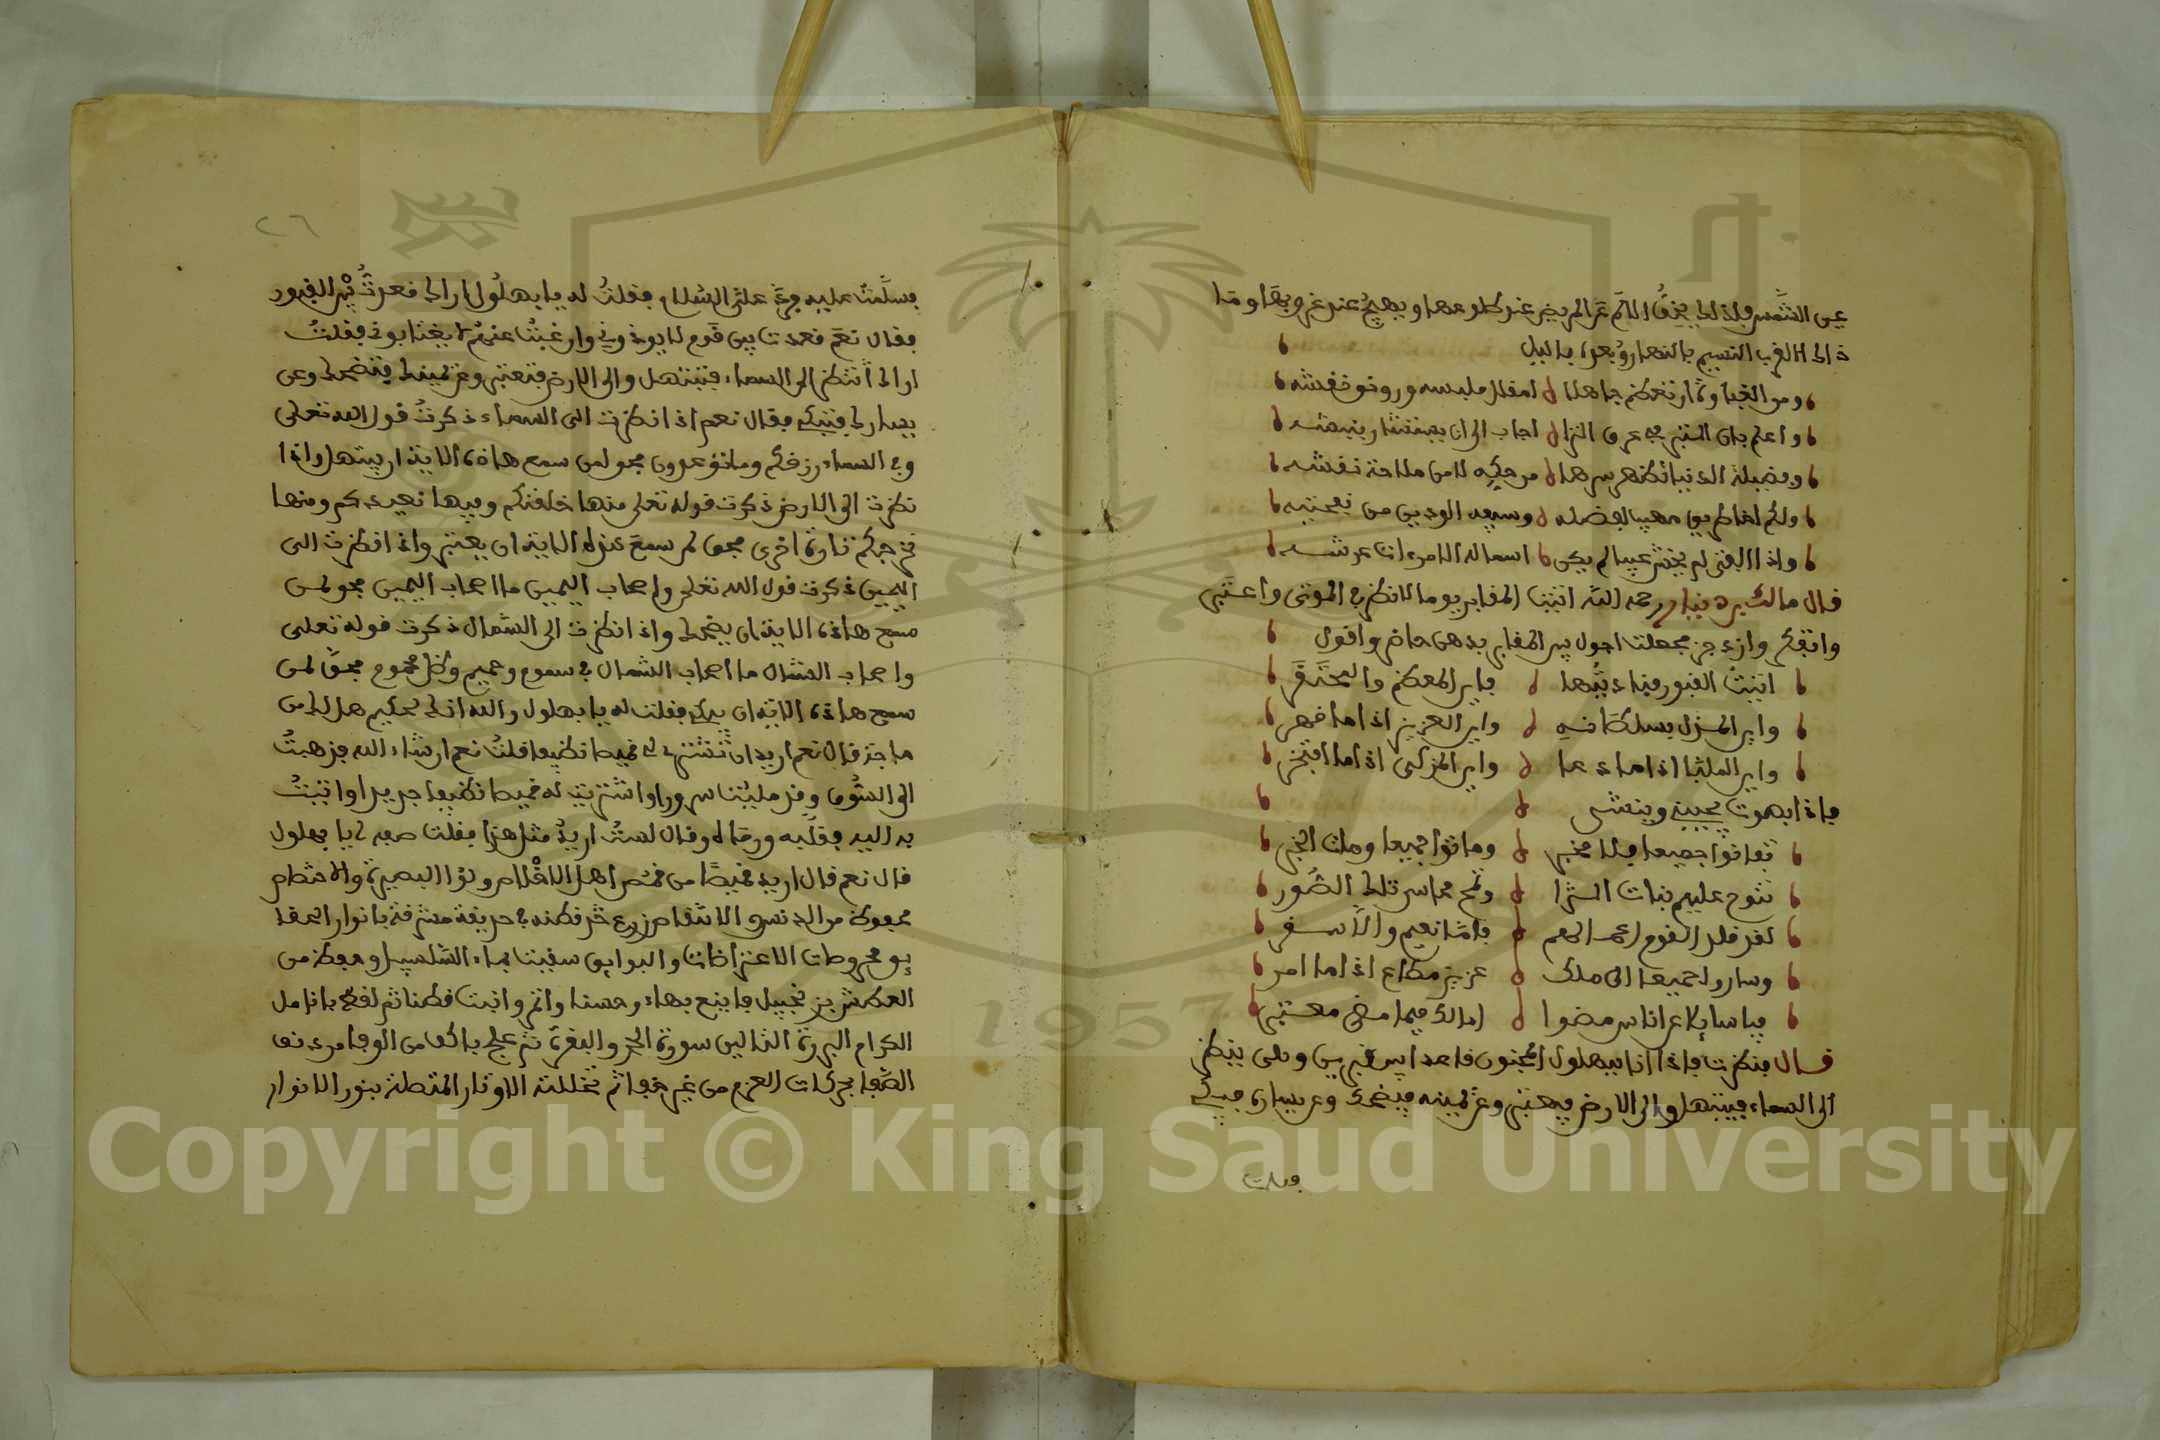 عين الشمس فلذلك يخف الم المريض عند طلوعها ويهيج عند غروبها وما
ذالك الا لقرب النسيم بالنهار وبعده بالليل
ومن الغباوة ان تعظم جاهلا لصقال ملبسه ورونق نقشه
واعلم بان التبر في عرق الثرا خاف الى ان يستثار بنبشه
وفضيلة الدينار يظهر سرها من حكه لا من ملاحة نقشه
ولكم اخا طمرين هيب لفضله
واذا الفتى لم يخش عيبا لم يكن اسماله الا مراقي عرشه
قال مالك بن دينار رحمه الله اتيت المقابر يوما لانظر في الموتى واعتبر
واتفكر وازدجر فجعلت اجول بين المقابر بذهن حاضر واقول
اتيت القبور فناديتها فاين المعظم والمحتقر
واين المذل بسلطانه واين العزيز اذا ما قهر
واين الملبا اذا ما دعا واين المزكى اذا ما افتخر
فاذا بصوت يجيبني وينشد
تفانوا جميعا فلا مخبر وماتوا جميعا ومات الخبر
تنوح عليهم بنات الثرا وتمح محاسن تلك الصور
لقد قلد القوم اعمالهم فاما نعيم والا سقر
وساروا جميعا الى ملك عزيز مطاع اذا ما امر
فيا سايلا عن اناس مضوا امالك فيما مضى معتبر
قال فنظرت فاذا انا ببهلول المجنون قاعدا بين قبرين وهي ينظر
الى السماء فيبتهل والى الارض فيعتبر وعن يمينه فيضحك وعن يساره فيبكي
فسلمت
٢٦
فسلمت عليه فرد علي السلام فقلت له يا بهلول اراك قعدت بين القبور
فقال نعم قعدت بين قوم لا يوذونني وان غبت عنهم لا يغتابوني فقلت
اراك تنظر الى السماء فتبتهل والى الارض فتعتبر وعن يمينك فتضحك وعن
يسارك فتبكي فقال نعم اذا نظرت الى السماء ذكرت قول الله تعلى
وفي السماء رزقكم وما توعدون فحق لمن سمع هاذه الاية ان يبتهل واذا
نظرت الى الارض ذكرت قوله تعلى منها خلقنكم وفيها نعيدكم ومنها
نخرجكم تارة اخرى فحق لمن سمع هذه الاية ان يعتبر واذا نظرت الى
اليمين ذكرت قول الله تعلى واصحاب اليمين ما اصحاب اليمين فحق لمن
سمع هاذه الاية ان يضحك واذا نظرت الى الشمال ذكرت قوله تعلى
واصحاب الشمال ما اصحاب الشمال في سموم وحميم وظل من يحموم فحق لمن
سمع هاذه الاية ان يبكي فقلت له يا بهلول والله انك لحكيم هل لك من
حاجة قال نعم اريد ان تشتري لي قميصا نظيفا قلت نعم ان شاء الله فذهبت
الى السوق وقد مليت سرورا واشتريت له قميصا نظيفا جديدا واتيت
به اليه فقلبه ورماه وقال لست اريد مثل هذا فقلت صفه لي يا بهلول
قال نعم قال اريد قميصا من قمص اهل الاخلاص وذوي البصيرة والاختصاص
محفوظ من الدنس والانتقاص زرع قطنه في حديقة مشرفة بانوار الحقايق
محروطات الاعتراضات والبوايق سقيت بماء السلسبيل وحفظ من
العطش بزنجبيل فاينع بهاء وحسنا واثمر وانبت قطنا ثم لقط بانامل
الكرام البررة التالين سورة الحجر والبقرة ثم حلج باكف من الوفا
الصفا بحركات العزم من غير جفا ثم تخللته الاوتار المتصلة بنور الانوار